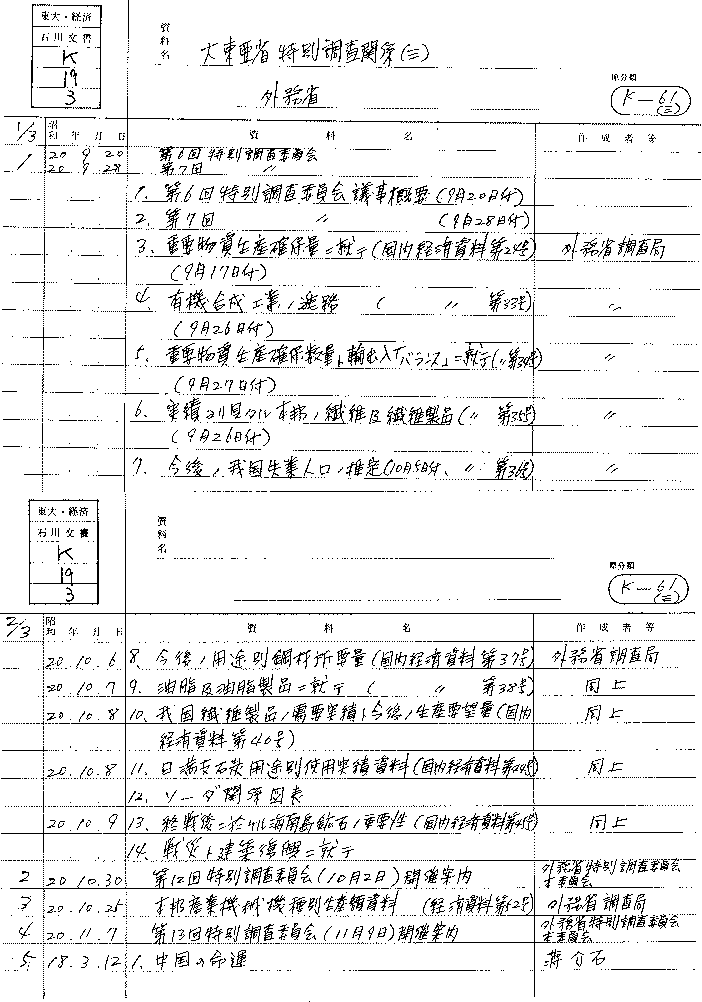 東大・経済
石川文書
K
19
3
資料名
大東亜省特別調査関係(三)
外務省
原分類
K-61
(三)
1/3
昭和 年 月 日
資 料 名
作 成 者 等
1 20 9 20 第6回特別調査委員会
20 9 28 第7回 〃
1. 第6回特別調査委員会議事概要(9月20日付)
2. 第7回 〃 (9月28日付)
3. 重要物資生産確保量ニ就テ(国内経済資料第24号) 外務省調査局
(9月17日付)
4. 有機合成工業ノ進路 ( 〃 第33号) 〃
(9月26日付)
5. 重要物資生産確保数量ト輸出入「バランス」ニ就テ(〃第34号) 〃
(9月27日付)
6. 実績ヨリ見タル本邦ノ繊維及繊維製品(〃 第35号) 〃
(9月26日付)
7. 今後ノ我国失業人口ノ推定(10月5日付、〃 第36号) 〃
東大・経済
石川文書
K
19
3
資料名
原分類
K-61
(三)
2/3
昭和 年 月 日
資 料 名
作 成 者 等
20.10.6 8. 今後ノ用途別鋼材所要量(国内経済資料第37号) 外務省調査局
20.10.7 9. 油脂及油脂製品ニ就テ ( 〃 第38号) 同上
20.10.8 10. 我国繊維製品ノ需要実績ト今後ノ生産要望量(国内 同上
経済資料第40号)
20.10.8 11. 日満支石炭用途別使用実績資料(国内経済資料第44号) 同上
12. ソーダ関係図表
20.10 9 13. 終戦後ニ於ケル海南島鉱石ノ重要性(国内経済資料第45号) 同上
14. 戦災ト建築復興ニ就テ
2 20 10.30 第12回特別調査委員会(10月2日)開催案内 外務省特別調査委員会
本委員会
3 20.10.25 本邦産業機械機種別生産額資料 (経済資料第52号) 外務省調査局
4 20.11.7 第13回特別調査委員会(11月9日)開催案内 外務省特別調査委員会
本委員会
5. 18.3.12 1. 中国の命運 蒋介石